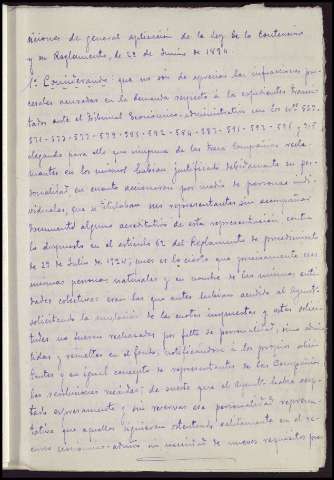 siciones de general aplicación de la Ley de lo Contencioso
y su Reglamento, de 22 de Junio de 1894.
1º Considerando: que no son de apreciar las infracciones pro-
cesales acusadas en la demanda respecto a los expedientes trami-
tados ante el Tribunal Económico-administrativo con los nºs 557-
571-573-577-579-583-582-584-587-591-592-595 y
alegando para ello que ninguna de las trece Compañías recla-
mantes en los mismos habían justificado debidamente su per-
sonalidad en cuanto accionaron por medio de personas indi-
viduales, que se titulaban sus representantes sin acompañar
documento alguno acreditativo de esta representación contra
lo dispuesto en el artículo 62 del Reglamento de procedimiento
de 29 de Julio de 1924; pues es lo cierto que precisamente esas
mismas personas naturales y en nombre de las mismas enti-
dades colectivas eran las que antes habían acudido al Ayuntº
solicitando la anulación de las cuotas impuestas y estas solici-
tudes no fueron rechazadas por falta de personalidad, sino admi-
tidas y resueltas en el fondo, notificándose a los propios solici-
tantes y en igual concepto de representantes de las Compañías
las resoluciones recaídas; de suerte que el Ayuntº había acep-
tado expresamente y sin reservas esa personalidad represen-
tativa que aquellos siguieron ostentando válidamente en el re-
curso económico-admvo sin necesidad de nuevos requisitos pro